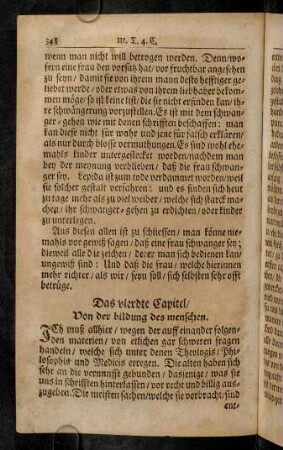 348 III. T. 4. C.
wenn man nicht will betrogen werden. Denn/wo-
fern eine frau den vorsatz hat/ vor fruchtbar angesehen
zu seyn/ damit sie von ihrem mann desto hefftiger ge-
liebet werde/ oder etwas von ihrem liebhaber bekom-
men möge/ so ist keine list/ die sie nicht erfinden kan/ ih-
re schwängerung vorzustellen. Es ist mit dem schwan-
ger-gehen wie mit denen schrifften beschaffen: man
kan diese nicht für wahr und jene für falsch erklären/
als nur durch blosse vermuthungen. Es sind wohl ehe-
mahls kinder untergestecket worden/ nachdem man
bey der meynung verblieben/ daß die frau schwan-
ger sey. Lepida ist zum tode verdammet worden/ weil
sie solcher gestalt verfahren: und es finden sich heut
zu tage mehr als zu viel weiber/ welche sich starck ma-
chen/ ihr schwanger-gehen zu erdichten/ oder kinder
zu unterlegen.
Aus diesen allen ist zu schliessen/ man könne nie-
mahls vor gewiß sagen/ daß eine frau schwanger sey;
dieweil alle die zeichen/ derer man sich bedienen kan/
ungewiß sind: Und daß die frau/ welche hierinnen
mehr richter/ als wir/ seyn soll/ sich selbsten sehr offt
betrüge.
Das vierdte Capitel/
Von der bildung des menschen.
ICh muß allhier/ wegen der auff einander folgen-
den materien/ von etlichen gar schweren fragen
handeln/ welche sich unter denen Theologis/ Phi-
losophis und Medicis erregen. Die alten haben sich
sehr an die vernunfft gebunden/ dasjenige/ was sie
uns in schrifften hinterlassen/ vor recht und billig aus-
zugeben. Die meisten sachen/ welche sie vorbracht/ sind
ent-